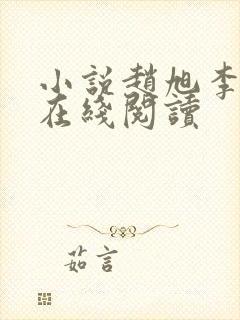 小説趙旭李
在綫閱讀
茹言